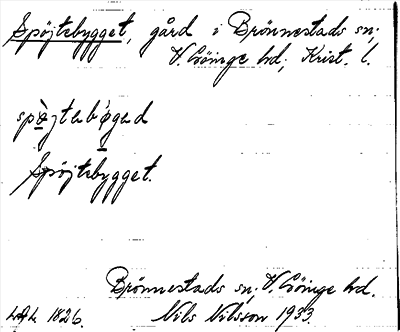 Spøjtebygget, gård i Brönnestads sn;
V. Göinge hd; Krist. l.
spø̀jtabýgad
Spøjtebygget.
Brönnestads sn; V. Göinge hd.
1826. Nils Nilsson 1933.